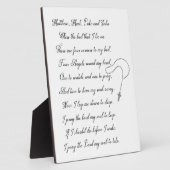 Matthew, Mark, Luke and John
Bless the bed that I lie on.
There are four corners to my bed,
Four Angels round my head,
One to watch and one to pray,
And two to bear my soul away.
Now I lay me down to sleep,
I pray the Lord my soul to keep.
If I should die before I wake,
I pray the Lord my soul to take.